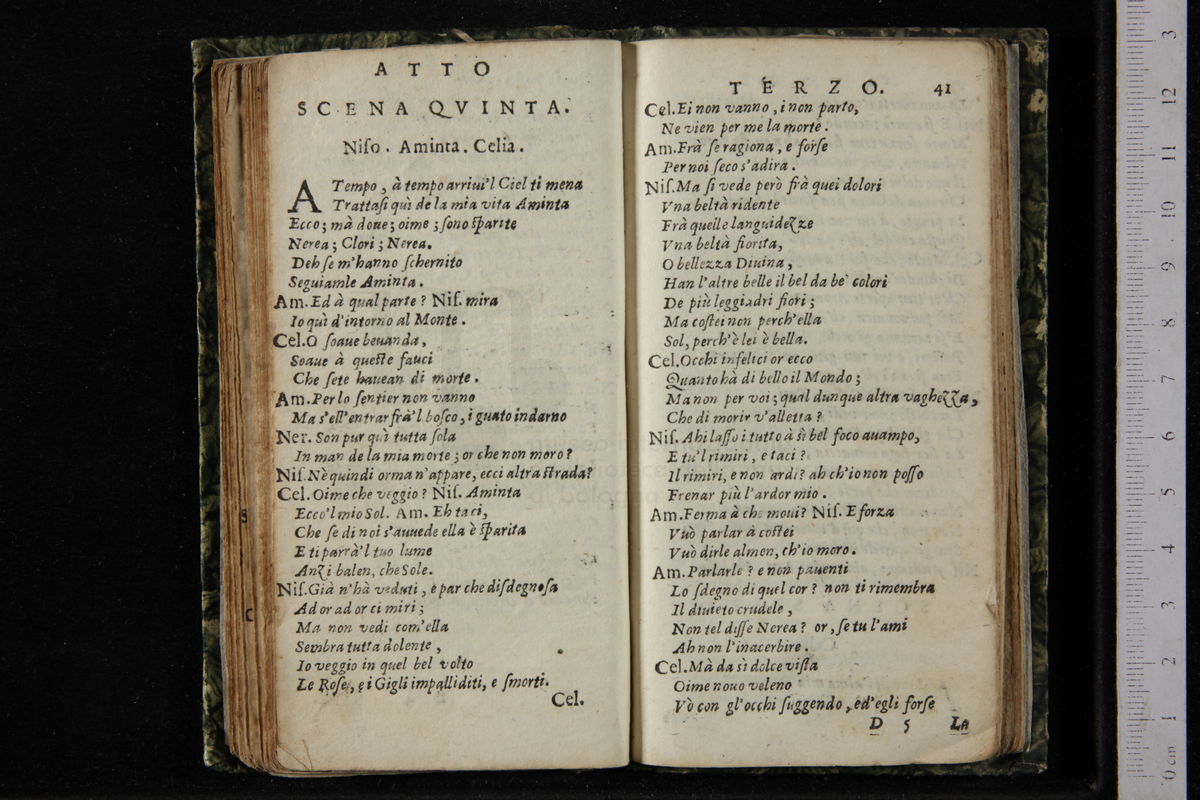 ATTO
SCENA QVINTA.
Niſo. Aminta. Celia.
A Tempo, à tempo arriui'l Ciel ti mena
Trattaſi quì de la mia vita Aminta
Ecco; mà doue; oime; ſono ſparite
Nerea; Clori; Nerea.
Deh ſe m'hanno ſchernito
Seguiamle Aminta.
Am. Ed à qual parte? Niſ. mira
Io quì d'intorno al Monte.
Cel. O ſoaue beuanda,
Soaue à queſte fauci
Che ſete hauean di morte.
Am. Per lo ſentier non vanno
Ma s'ell'entrar frà'l boſco, i guato indarno
Ner. Son pur quì tutta ſola
In man de la mia morte; or che non moro?
Niſ. Nè quindi orma n'appare, ecci altra ſtrada?
Cel. Oime che veggio? Niſ. Aminta
Ecco'l mio Sol. Am. Eh taci,
Che ſe di noi s'auuede ella è ſparita
E ti parrà'l tuo lume
Anzi balen, che Sole.
Niſ. Già n'hà veduti, e par che diſdegnoſa
Ad or ad or ci miri;
Ma non vedi com'ella
Sembra tutta dolente,
Io veggio in quel bel volto
Le Roſe, e i Gigli impalliditi, e ſmorti.
Cel.
TERZO. 41
Cel. Ei non vanno, i non parto,
Ne vien per me la morte.
Am. Frà ſe ragiona, e forſe
Per noi ſeco s'adira.
Niſ. Ma ſi vede però frà quei dolori
Vna beltà ridente
Frà quelle languidezze
Vna beltà fiorita,
O bellezza Diuina,
Han l'altre belle il bel da be' colori
De più leggiadri fiori;
Ma coſtei non perch'ella
Sol, perch'è lei è bella.
Cel. Occhi infelici or ecco
Quanto hà di bello il Mondo;
Ma non per voi; qual dunque altra vaghezza,
Che di morir v'alletta?
Niſ. Ahi laſſo i tutto à sì bel foco auampo,
E tu'l rimiri, e taci?
Il rimiri, e non ardi? ah ch'io non poſſo
Frenar più l'ardor mio.
Am. Ferma à che moui? Niſ. E forza
Vuò parlar à coſtei
Vuò dirle almen, ch'io moro.
Am. Parlarle? e non pauenti
Lo ſdegno di quel cor? non ti rimembra
Il diuieto crudele,
Non tel diſſe Nerea? or, ſe tu l'ami
Ah non l'inacerbire.
Cel. Mà da sì dolce viſta
Oime nouo veleno
Vò con gl'occhi ſuggendo, ed'egli forſe
D 5 La
3
12
11
10
9
8
7
6
5
4
3
2
1
0 cm